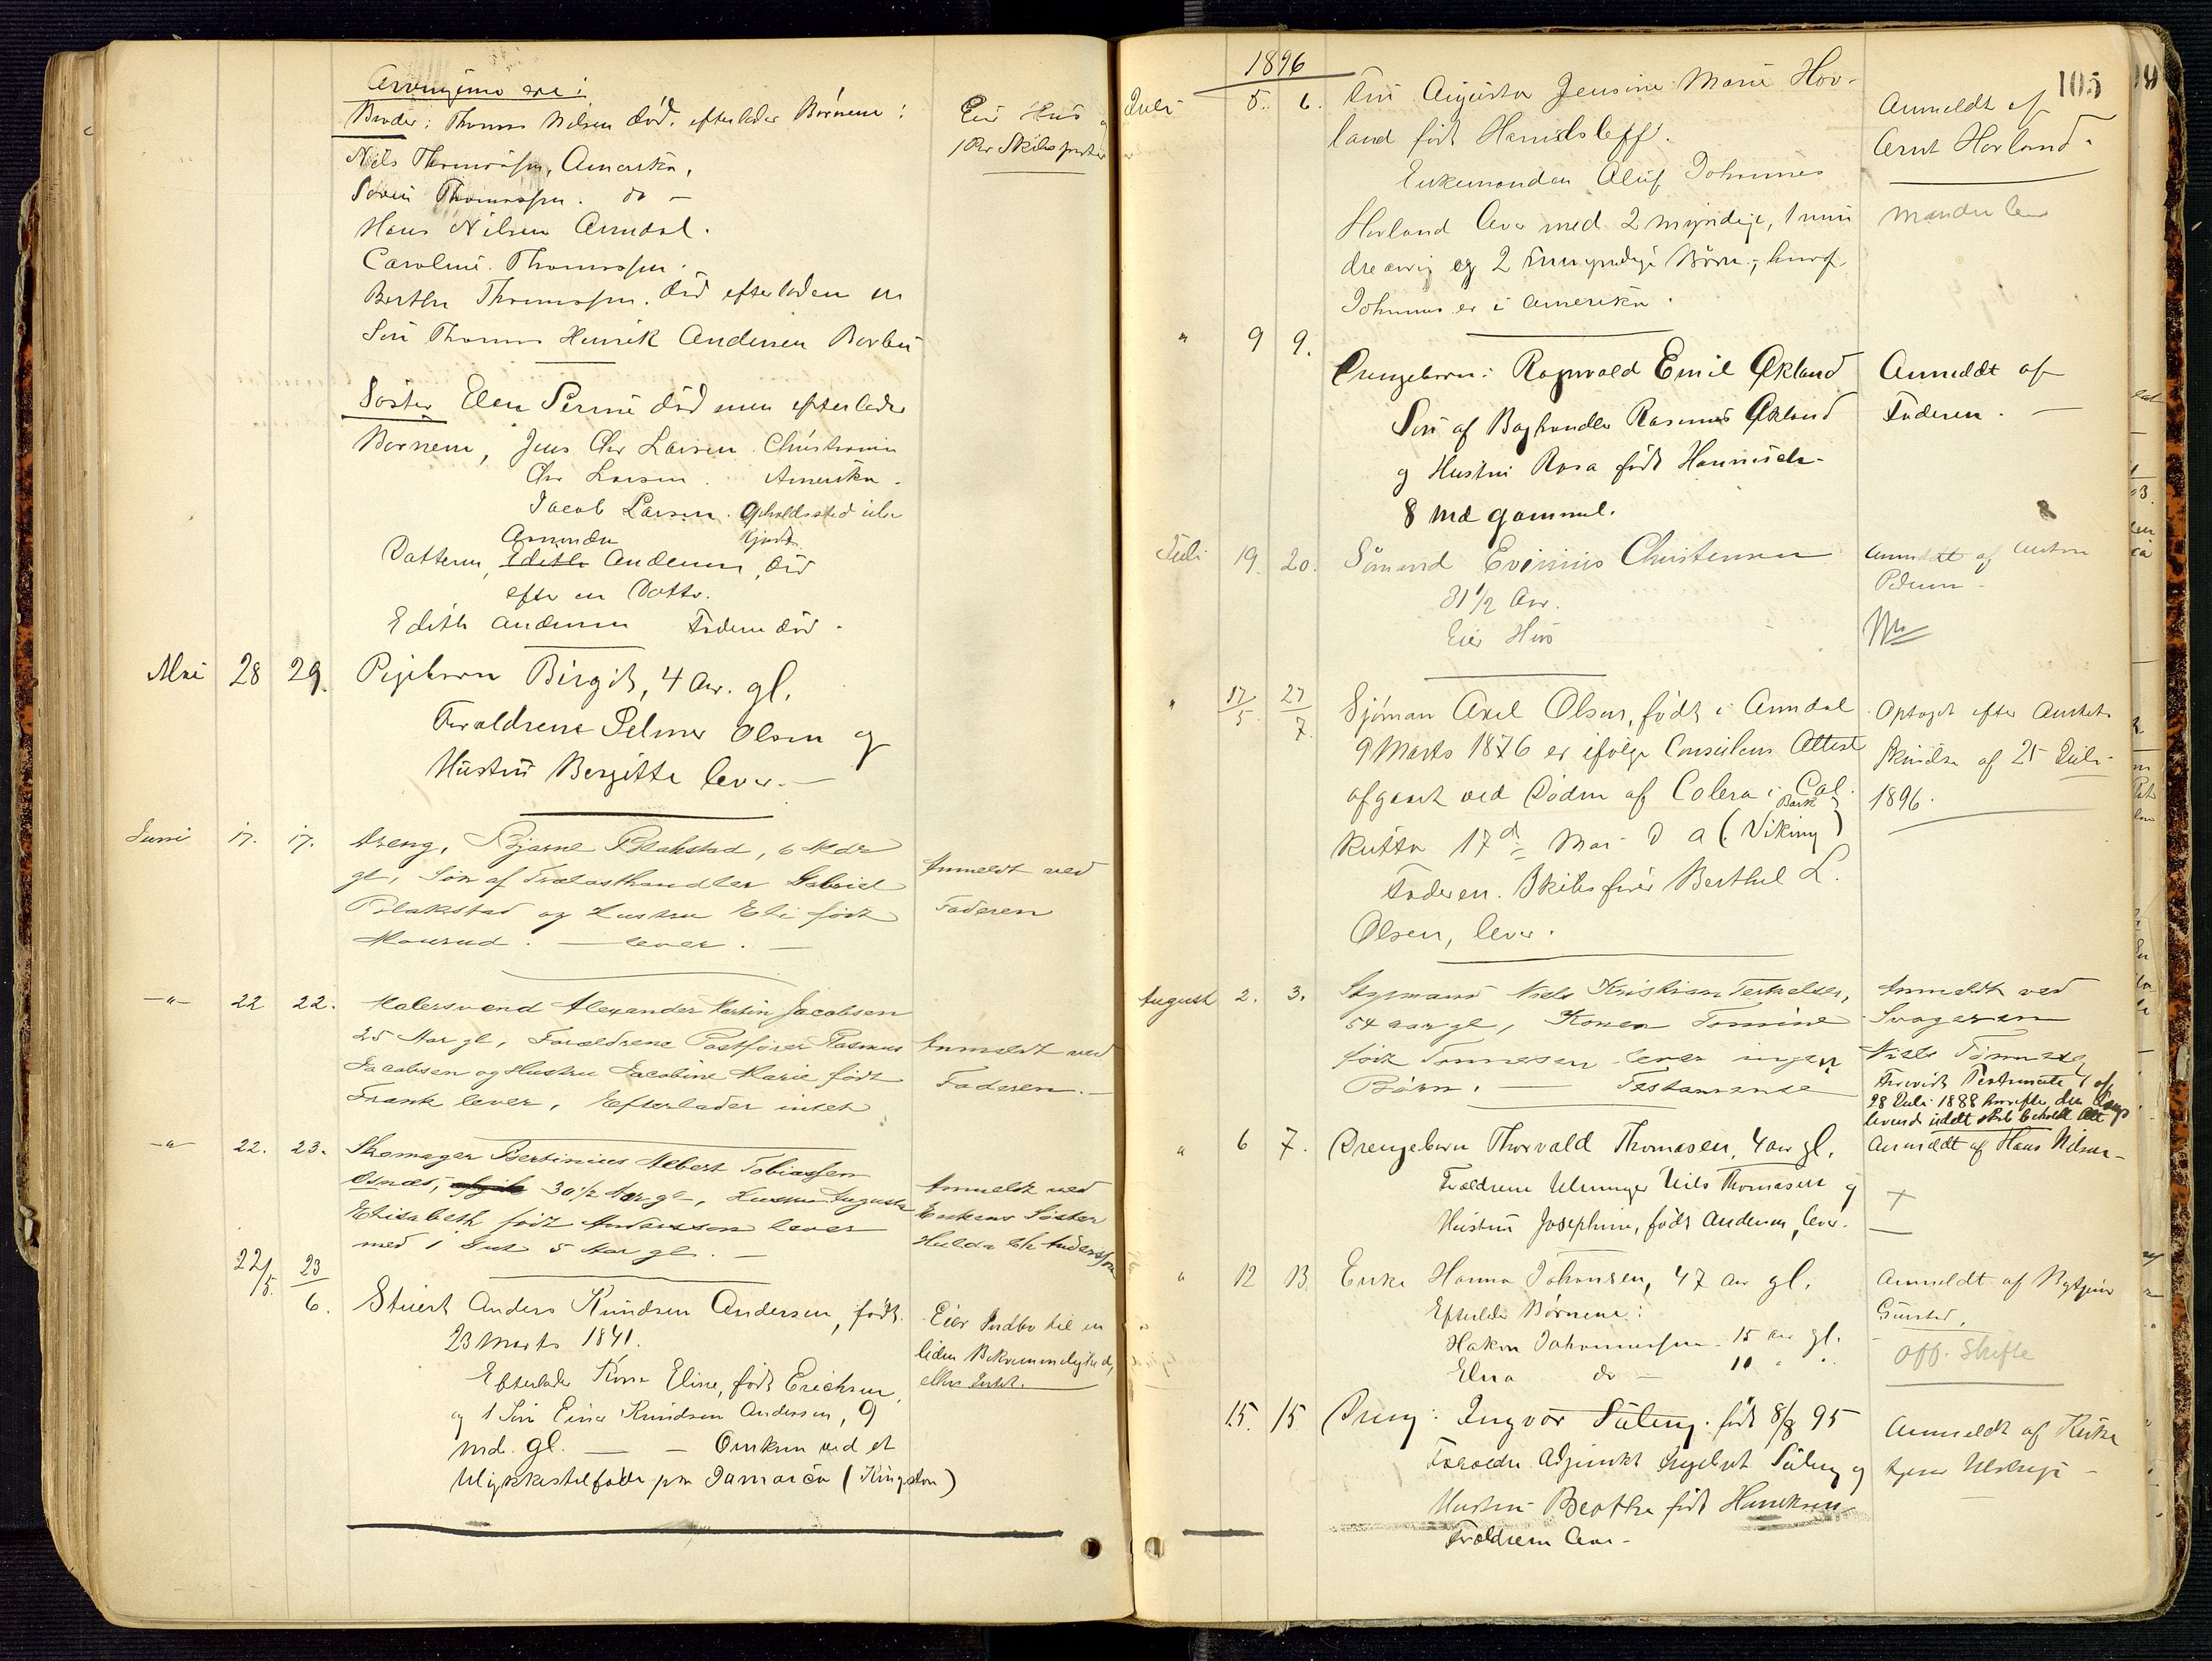 Arvingerne ere:
Broder: Thomas Nilsen död. efterlader Börnene:
Eier Hus og
Skibsparter
Nils Thomassen, Amerika,
Sören Thomassen. do —
Hans Nilsen Arendal.
Caroline Thomassen.
Berthe Thomassen. död efterladen en
Sön Thomas Henrik Andersen Barbu
Söster Elen död men efterlader
Börnene, Jens Chr Larsen Christiania
Chr Larsen. Amerika.
Jacob Larsen. Opholdssted ube
Amanda kjendt
Datteren, Edith Andersen, död
efter en Datter.
Edith Andersen Faderen död.
Mai 28 29. Pigebarn Birgit, 4 Aar. gl.
Foraldrene Selmer Olsen og
Hustru Bergitte lever. —
Juni 17. 17. Dreng, Bjarne Blakstad, 6 Mdr
gl, Sön af Trælasthandler Gabriel
Blakstad og Hustru Eli födt
Mourud. — lever. —
Anmeldt ved
Faderen
—"— 22 22. Malersvend Alexander Martin Jacobsen
25 Aar gl, Forældrene Postförer Rasmus
Jacobsen og Hustru Jacobine Marie födt
Frank lever, Efterlader intet
Anmeldt ved
Faderen. —
—"— 22. 23. Skomager Bertinius Albert Tobiassen
Osnæs, 30 1/2 Aar gl, Hustru Augusta
Elisabeth födt Andersson lever
med 1 Gut 5 Aar gl. —
Anmeldt ved
Enkens Söster
Hulda Andersson
22/5. 23/6. Stuert Anders Knudsen Andersen, födt
23 Marts 1841.
Efterlader Kone Eline, födt Erichsen,
og 1 Sön Einar Knudsen Andersen, 9
md. gl. — — Omkom ved et
Ulykkestilfælde paa Jamaica (Kingston)
Eier Indbo til en
liden Bekvemmelighed,
ellers Intet.
1896
105
Juli 5. 6. Fru Augusta Jensine Marie Hov-
land födt
Enkemanden Oluf Johannes
Hovland lever med 2 myndige, 1 min
dreaarig og 2 umyndige Börn, hvoraf
Johannes er i Amerika.
Anmeldt af
Arnt Hovland.
Manden lever
" 9 9. Drengebarn: Ragnvald Emil Økland
Sön af Boghandler Rasmus Økland
og Hustru Rosa födt
8 Md gammel.
Anmeldt af
Faderen. —
Juli 19. 20. Sömand Evinius Christensen
31 1/2 Aar.
Eier Hus
Anmeldt af Anton
" 17/5 27/7. Sjöman Axel Olsen, födt i Arendal
9 Marts 1876 er ifölge Consulens Attest
afgaaet ved Döden af Colera i Cal-
kutta 17d Mai d A (Bark Viking)
Faderen. Skibsförer Berthel L.
Olsen, lever.
Optaget efter Amtets
skrivelse af 25 Juli
1896.
August 2. 3. Styrmand Niels Kristian Terkelsen,
54 aar gl, Konen Tomine
födt Tonnesen lever ingen
Börn. — Testamente
Anmeldt ved
Svogeren
Niels Tönnesen
Testamente af
28 Juli 1888 hvorefter den Længst
levende Alt
" 6 7. Drengebarn Thorvald Thomasen, 4 aar gl.
Forældrene Nils Thomasen og
Hustru Josephine, födt Andersen, lever.
Anmeldt af Hans Nilsen —
+
" 12 13. Enke Hanna Johansen, 47 aar gl.
Efterlader Börnene:
Hakon Johannessen. 15 aar gl.
Elna do — 10 " "
Anmeldt af
off. Skifte
15. 15 Dreng: Ingvar födt 8/8 95
Foraeldre Adjunkt og
Hustru Berthe födt Henriksen
Forældrene lever —
Anmeldt af Kirke
tjener